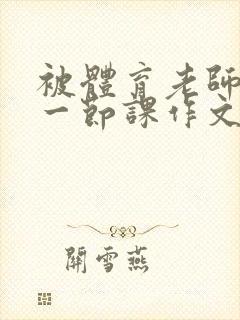 被體育老師
一節課作文
關雪燕